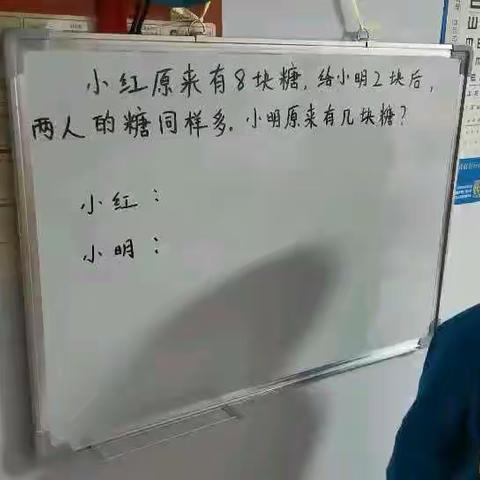 小红原来有8块糖，给小明2块后，
两人的糖同样多。小明原来有几块糖？
小红：
小明：